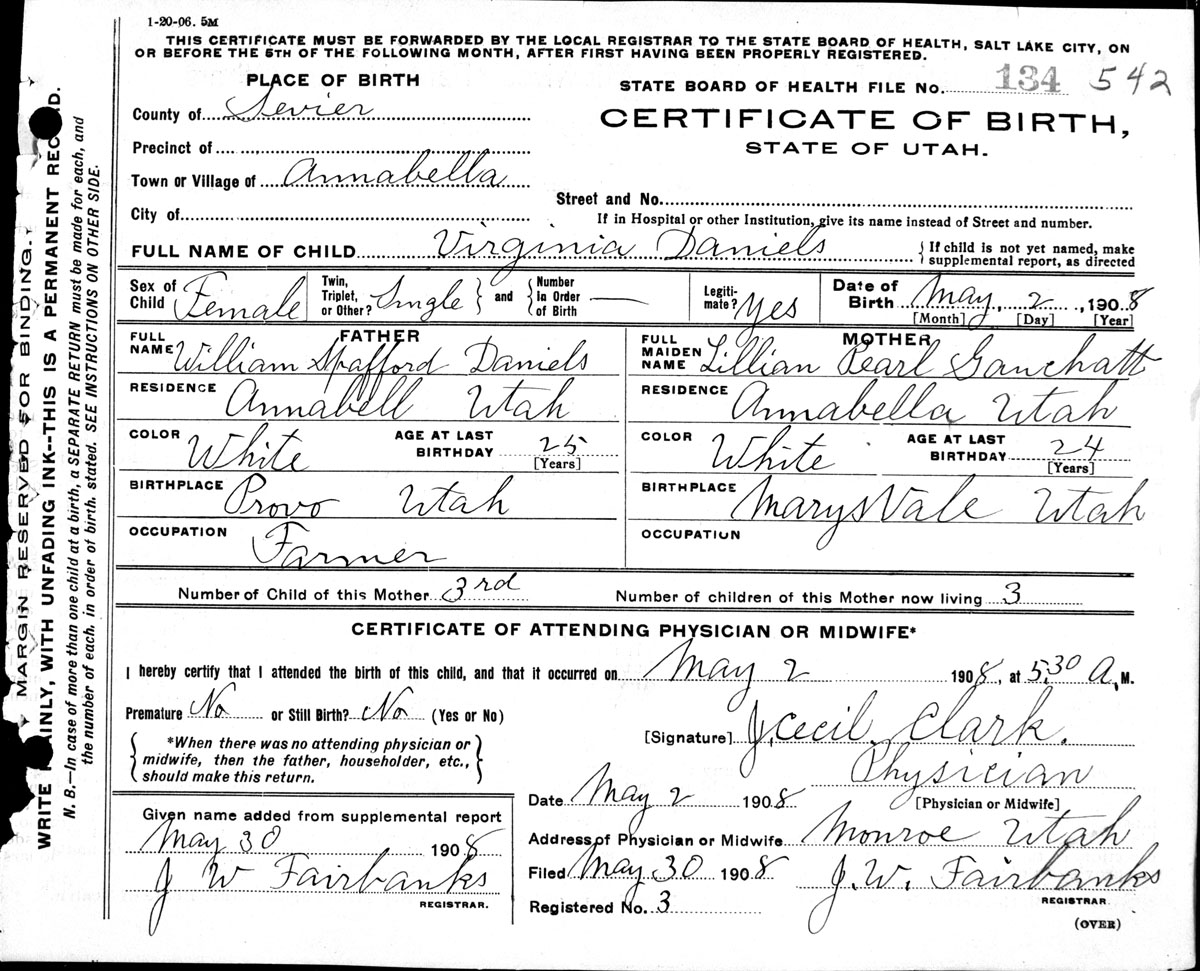 1-20-06. 5M
THIS CERTIFICATE MUST BE FORWARDED BY THE LOCAL REGISTRAR TO THE STATE BOARD OF HEALTH, SALT LAKE CITY, ON
OR BEFORE THE 5TH OF THE FOLLOWING MONTH, AFTER FIRST HAVING BEEN PROPERLY REGISTERED.
PLACE OF BIRTH
STATE BOARD OF HEALTH FILE No. 134 542
County of Sevier
CERTIFICATE OF BIRTH,
STATE OF UTAH.
Precinct of
Town or Village of Annabella
Street and No.
City of
If in Hospital or other Institution, give its name instead of Street and number.
FULL NAME OF CHILD Virginia Daniels { If child is not yet named, make
supplemental report, as directed
Sex of Child Female
Twin, Triplet, or Other? Single } and { Number In Order of Birth —
Legiti-mate? Yes
Date of Birth May 2, 1908
[Month] [Day] [Year]
FATHER
FULL NAME William Spafford Daniels
RESIDENCE Annabell Utah
COLOR White AGE AT LAST BIRTHDAY 25
[Years]
BIRTHPLACE Provo Utah
OCCUPATION Farmer
MOTHER
FULL MAIDEN NAME Lillian Pearl
RESIDENCE Annabella Utah
COLOR White AGE AT LAST BIRTHDAY 24
[Years]
BIRTHPLACE MarysVale Utah
OCCUPATION
Number of Child of this Mother 3rd Number of children of this Mother now living 3
CERTIFICATE OF ATTENDING PHYSICIAN OR MIDWIFE*
I hereby certify that I attended the birth of this child, and that it occurred on May 2 1908, at 5,30 A, M.
Premature No or Still Birth? No (Yes or No)
[Signature] J, Cecil Clark.
{ *When there was no attending physician or
midwife, then the father, householder, etc.,
should make this return. }
Physician
[Physician or Midwife]
Date May 2 1908
Address of Physician or Midwife Monroe Utah
Filed May 30 1908 J. W. Fairbanks
REGISTRAR
Registered No. 3
(OVER)
Given name added from supplemental report
May 30 1908
J W Fairbanks
REGISTRAR.
MARGIN RESERVED FOR BINDING.
WRITE PLAINLY, WITH UNFADING INK--THIS IS A PERMANENT RECORD.
N. B.—In case of more than one child at a birth, a SEPARATE RETURN must be made for each, and
the number of each, in order of birth, stated. SEE INSTRUCTIONS ON OTHER SIDE.